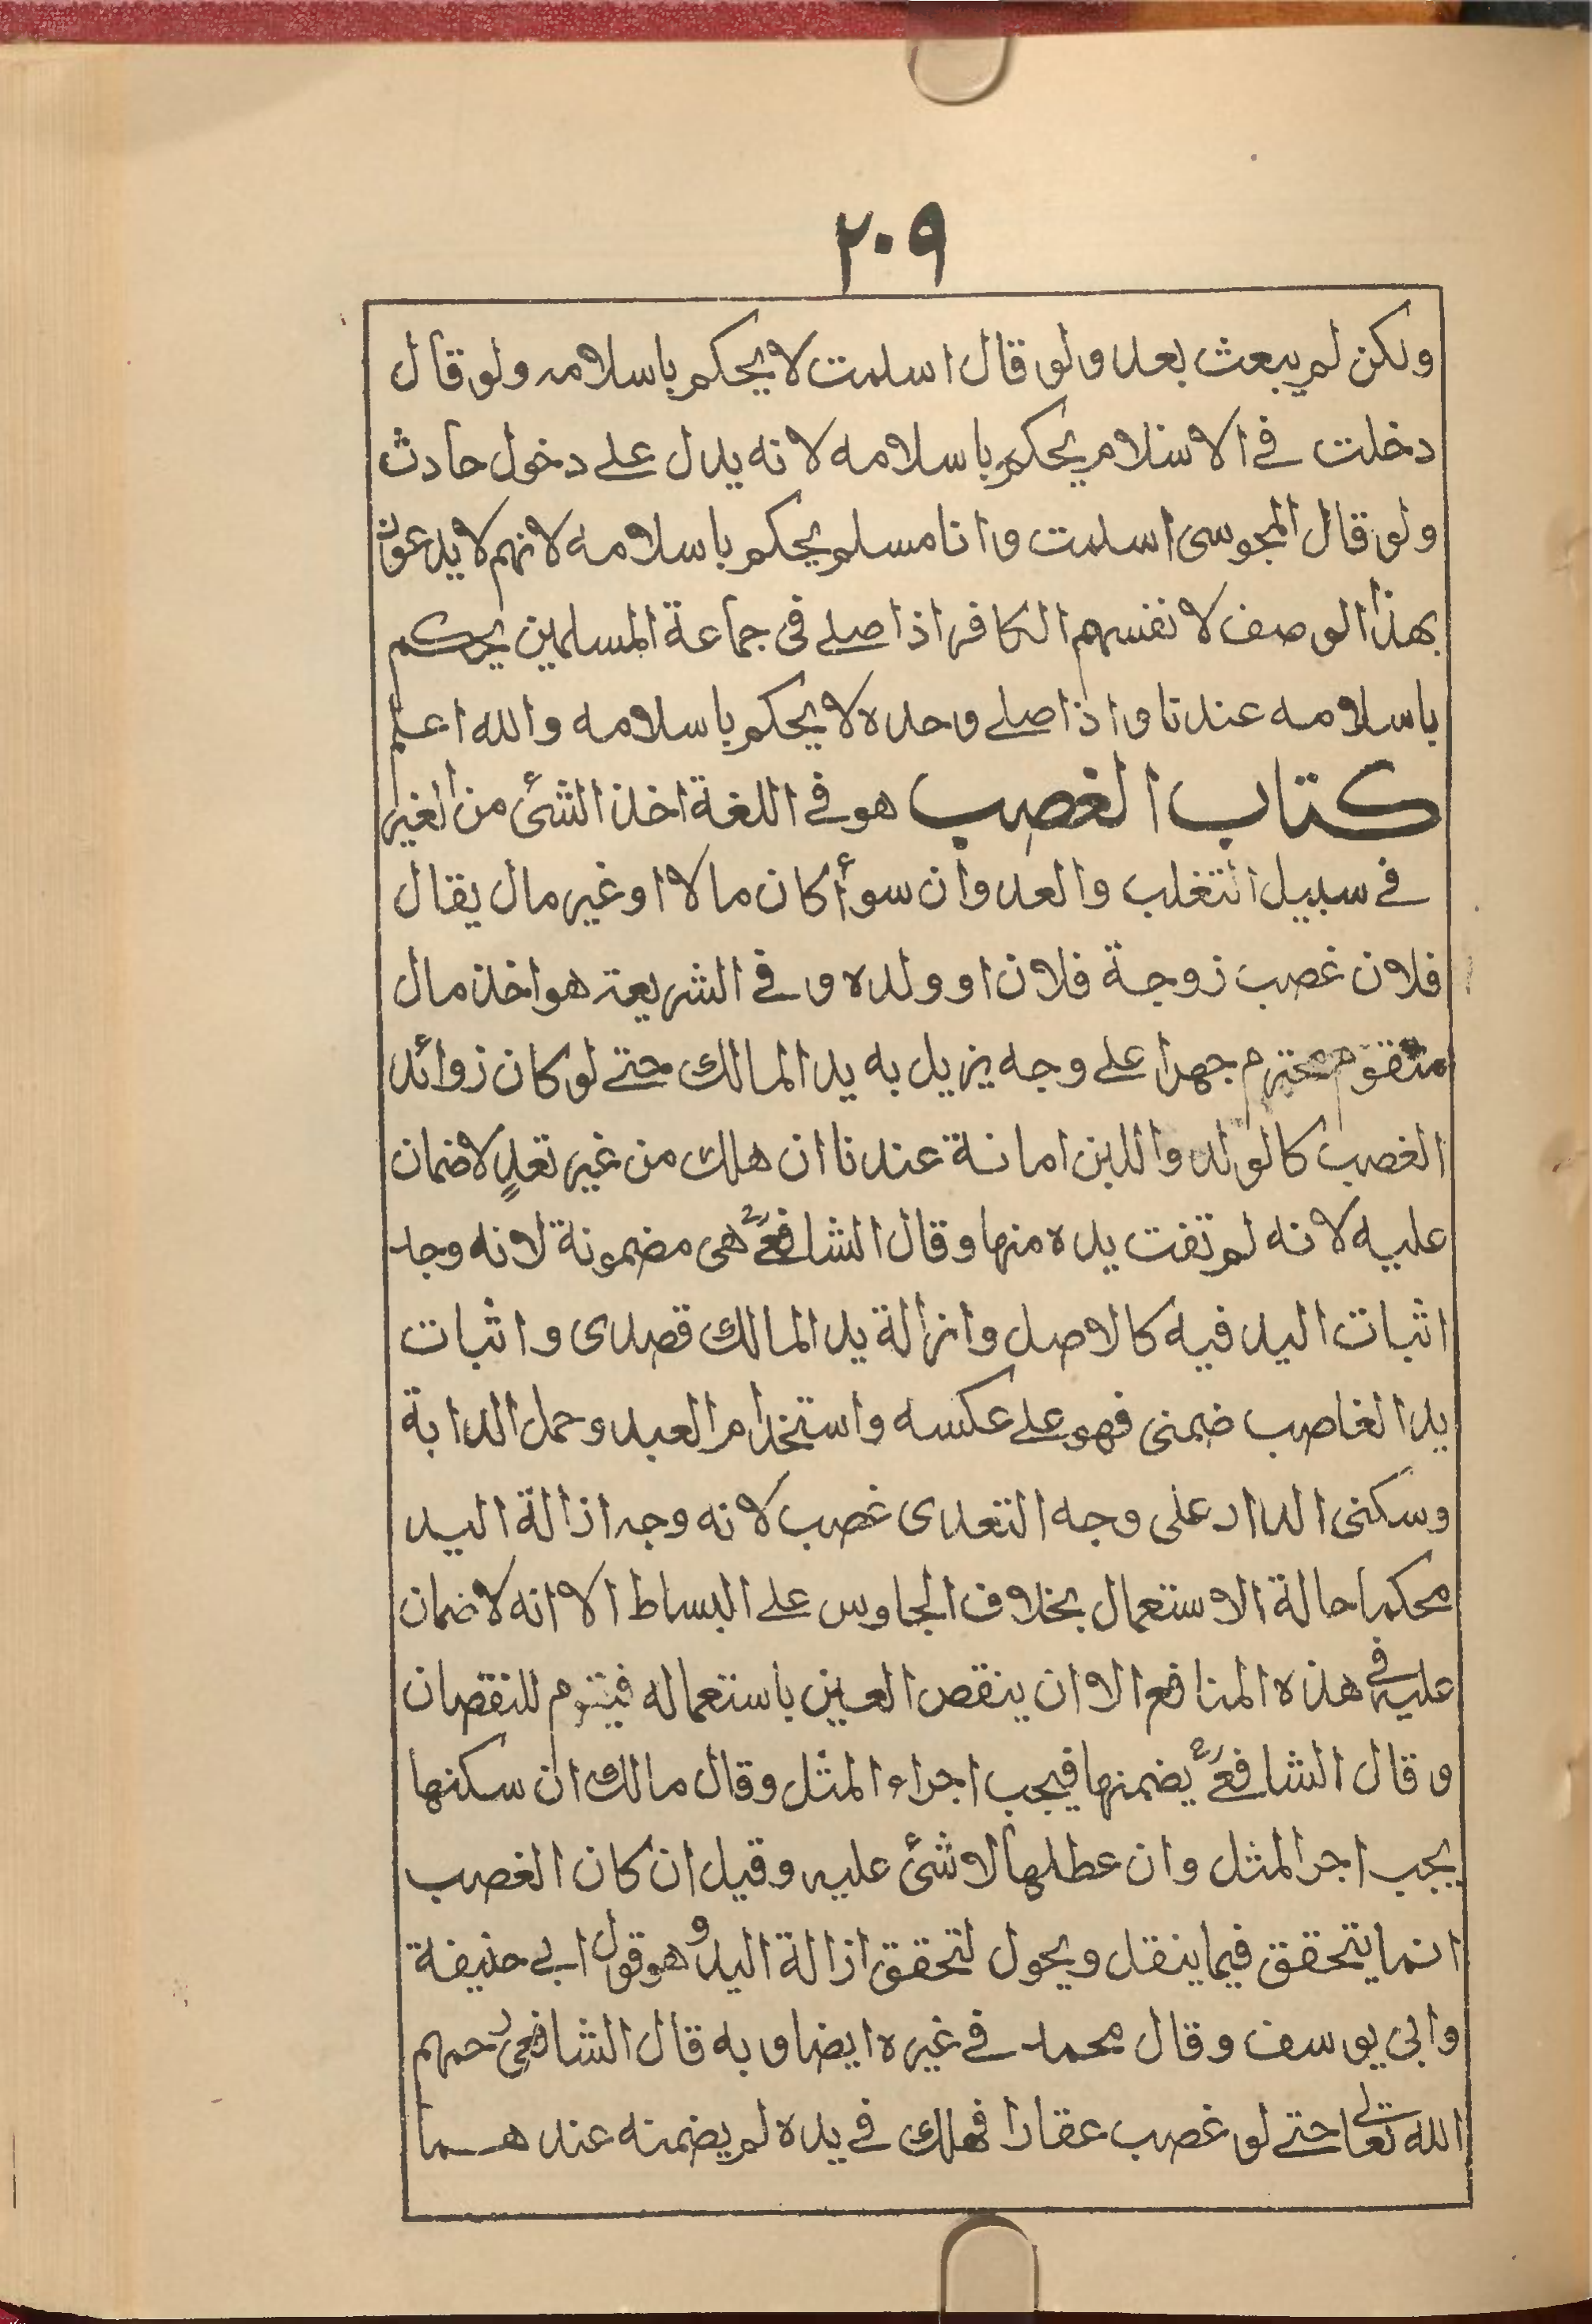 ٢٠٩
ولكن لم يبعث بعد ولو قال اسلمت لا يحكم باسلامه ولو قال
دخلت في الاسلام يحكم باسلامه لانه يدل على دخول حادث
ولو قال المجوسى اسلمت وانا مسلم يحكم باسلامه لانهم لا يدعون
بهذا الوصف لانفسهم الكافر اذا صلى فى جماعة المسلمين يحكم
باسلامه عندنا واذا صلى وحده لا يحكم باسلامه والله اعلم
كتاب الغصب هو فى اللغة اخذ الشئ من الغير
فى سبيل التغلب والعدوان سوأ كان مالا او غير مال يقال
فلان غصب زوجة فلان او ولده وفى الشريعة هو اخذ مال
متقوم محترم جهرا على وجه يزيل به يد المالك حتى لو كان زوائد
الغصب كالولد واللبن امانة عندنا ان هلك من غير تعدٍ لا ضمان
عليه لانه لم تفت يده منها وقال الشافعىؒ هى مضمونة لانه وجد
اثبات اليد فيه كالاصل وازالة يد المالك قصدى واثبات
يد الغاصب ضمنى فهو على عكسه واستخدام العبد وحمل الدابة
وسكنى الدار على وجه التعدى غصب لانه وجد ازالة اليد
محكما حالة الاستعمال بخلاف الجلوس على البساط الا انه لا ضمان
عليه فى هذه المنافع الا ان ينقص العين باستعماله للنقصان
وقال الشافعىؒ يضمنها فيجب اجراء المثل وقال مالك ان سكنها
يجب اجر المثل وان عطلها لا شئ عليه وقيل ان كان الغصب
انما يتحقق فيما ينقل ويحول لتحقق ازالة اليد وهو قول ابى حنيفة
وابى يوسف وقال محمد فى غيره ايضا وبه قال الشافعى رحمهم
الله تعالى حتى لو غصب عقارا فهلك فى يده لم يضمنه عند هما